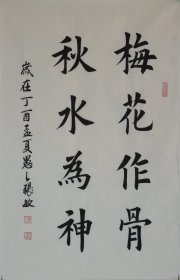 梅花作骨
秋水為神
歲在丁酉孟夏愚之張敏